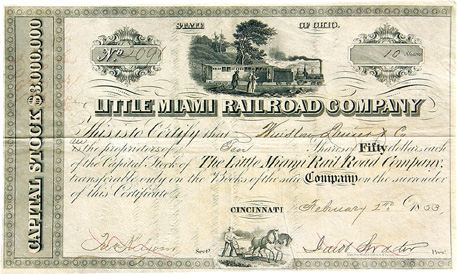 STATE OF OHIO.
No
10 Shares
LITTLE MIAMI RAILROAD COMPANY
CAPITAL STOCK $3,000,000
This is to Certify that Winslow Lanier & Co
are the proprietors of Ten Shares of Fifty dollars each
of the Capital Stock of The Little Miami Rail Road Company,
transferable only on the Books of the said Company on the surrender
of this Certificate.
CINCINNATI February 2nd 1853
Secy.
Jacob Strader Pres.